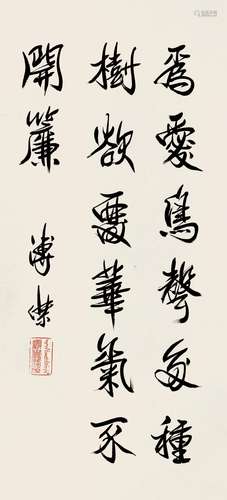 爲愛鳥聲多種
樹欲留華氣不
開簾
溥傑